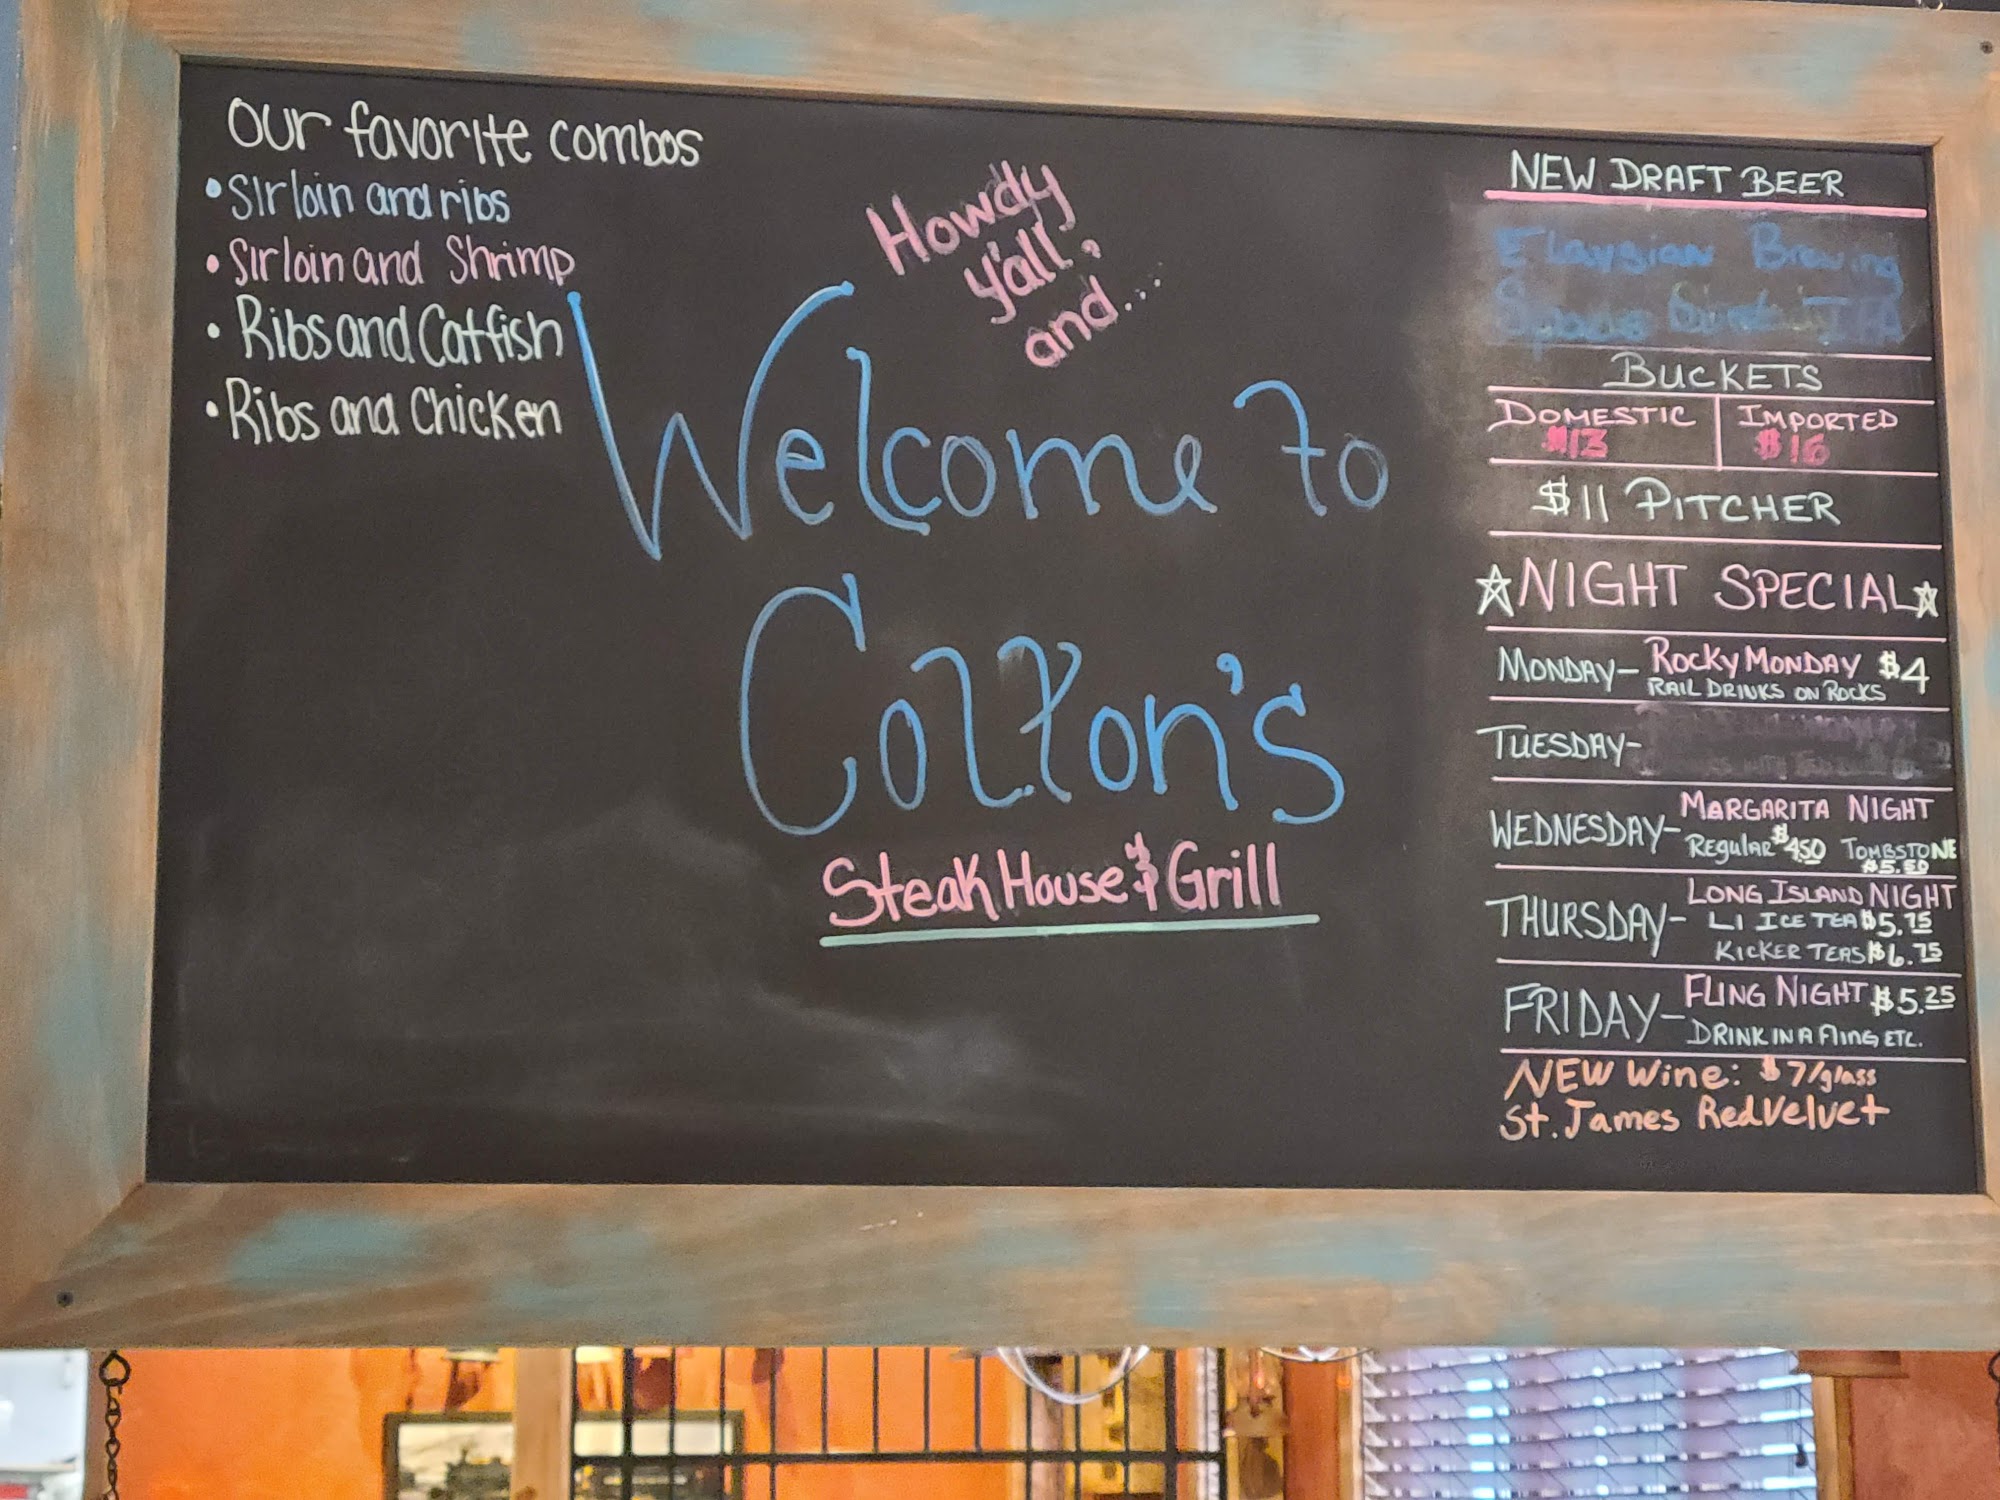 Our favorite combos
• Sirloin and ribs
• Sirloin and Shrimp
• Ribs and Catfish
• Ribs and Chicken
Howdy
y'all,
and...
Welcome to
Colton's
Steak House & Grill
NEW DRAFT BEER
Elaysian Brewing
Space Dust IPA
BUCKETS
DOMESTIC
$13
IMPORTED
$16
$11 PITCHER
☆NIGHT SPECIAL☆
MONDAY- ROCKY MONDAY $4
RAIL DRINKS ON ROCKS
TUESDAY-
WEDNESDAY- MARGARITA NIGHT
REgULAR $4.50 TOMBSTONE
$5.50
THURSDAY- LONG ISLAND NIGHT
LI ICE TEA $5.75
KICKER TEAS $6.75
FRIDAY- FLING NIGHT $5.25
DRINK IN A FlinG ETC.
NEW Wine: $7/glass
St. James Red Velvet